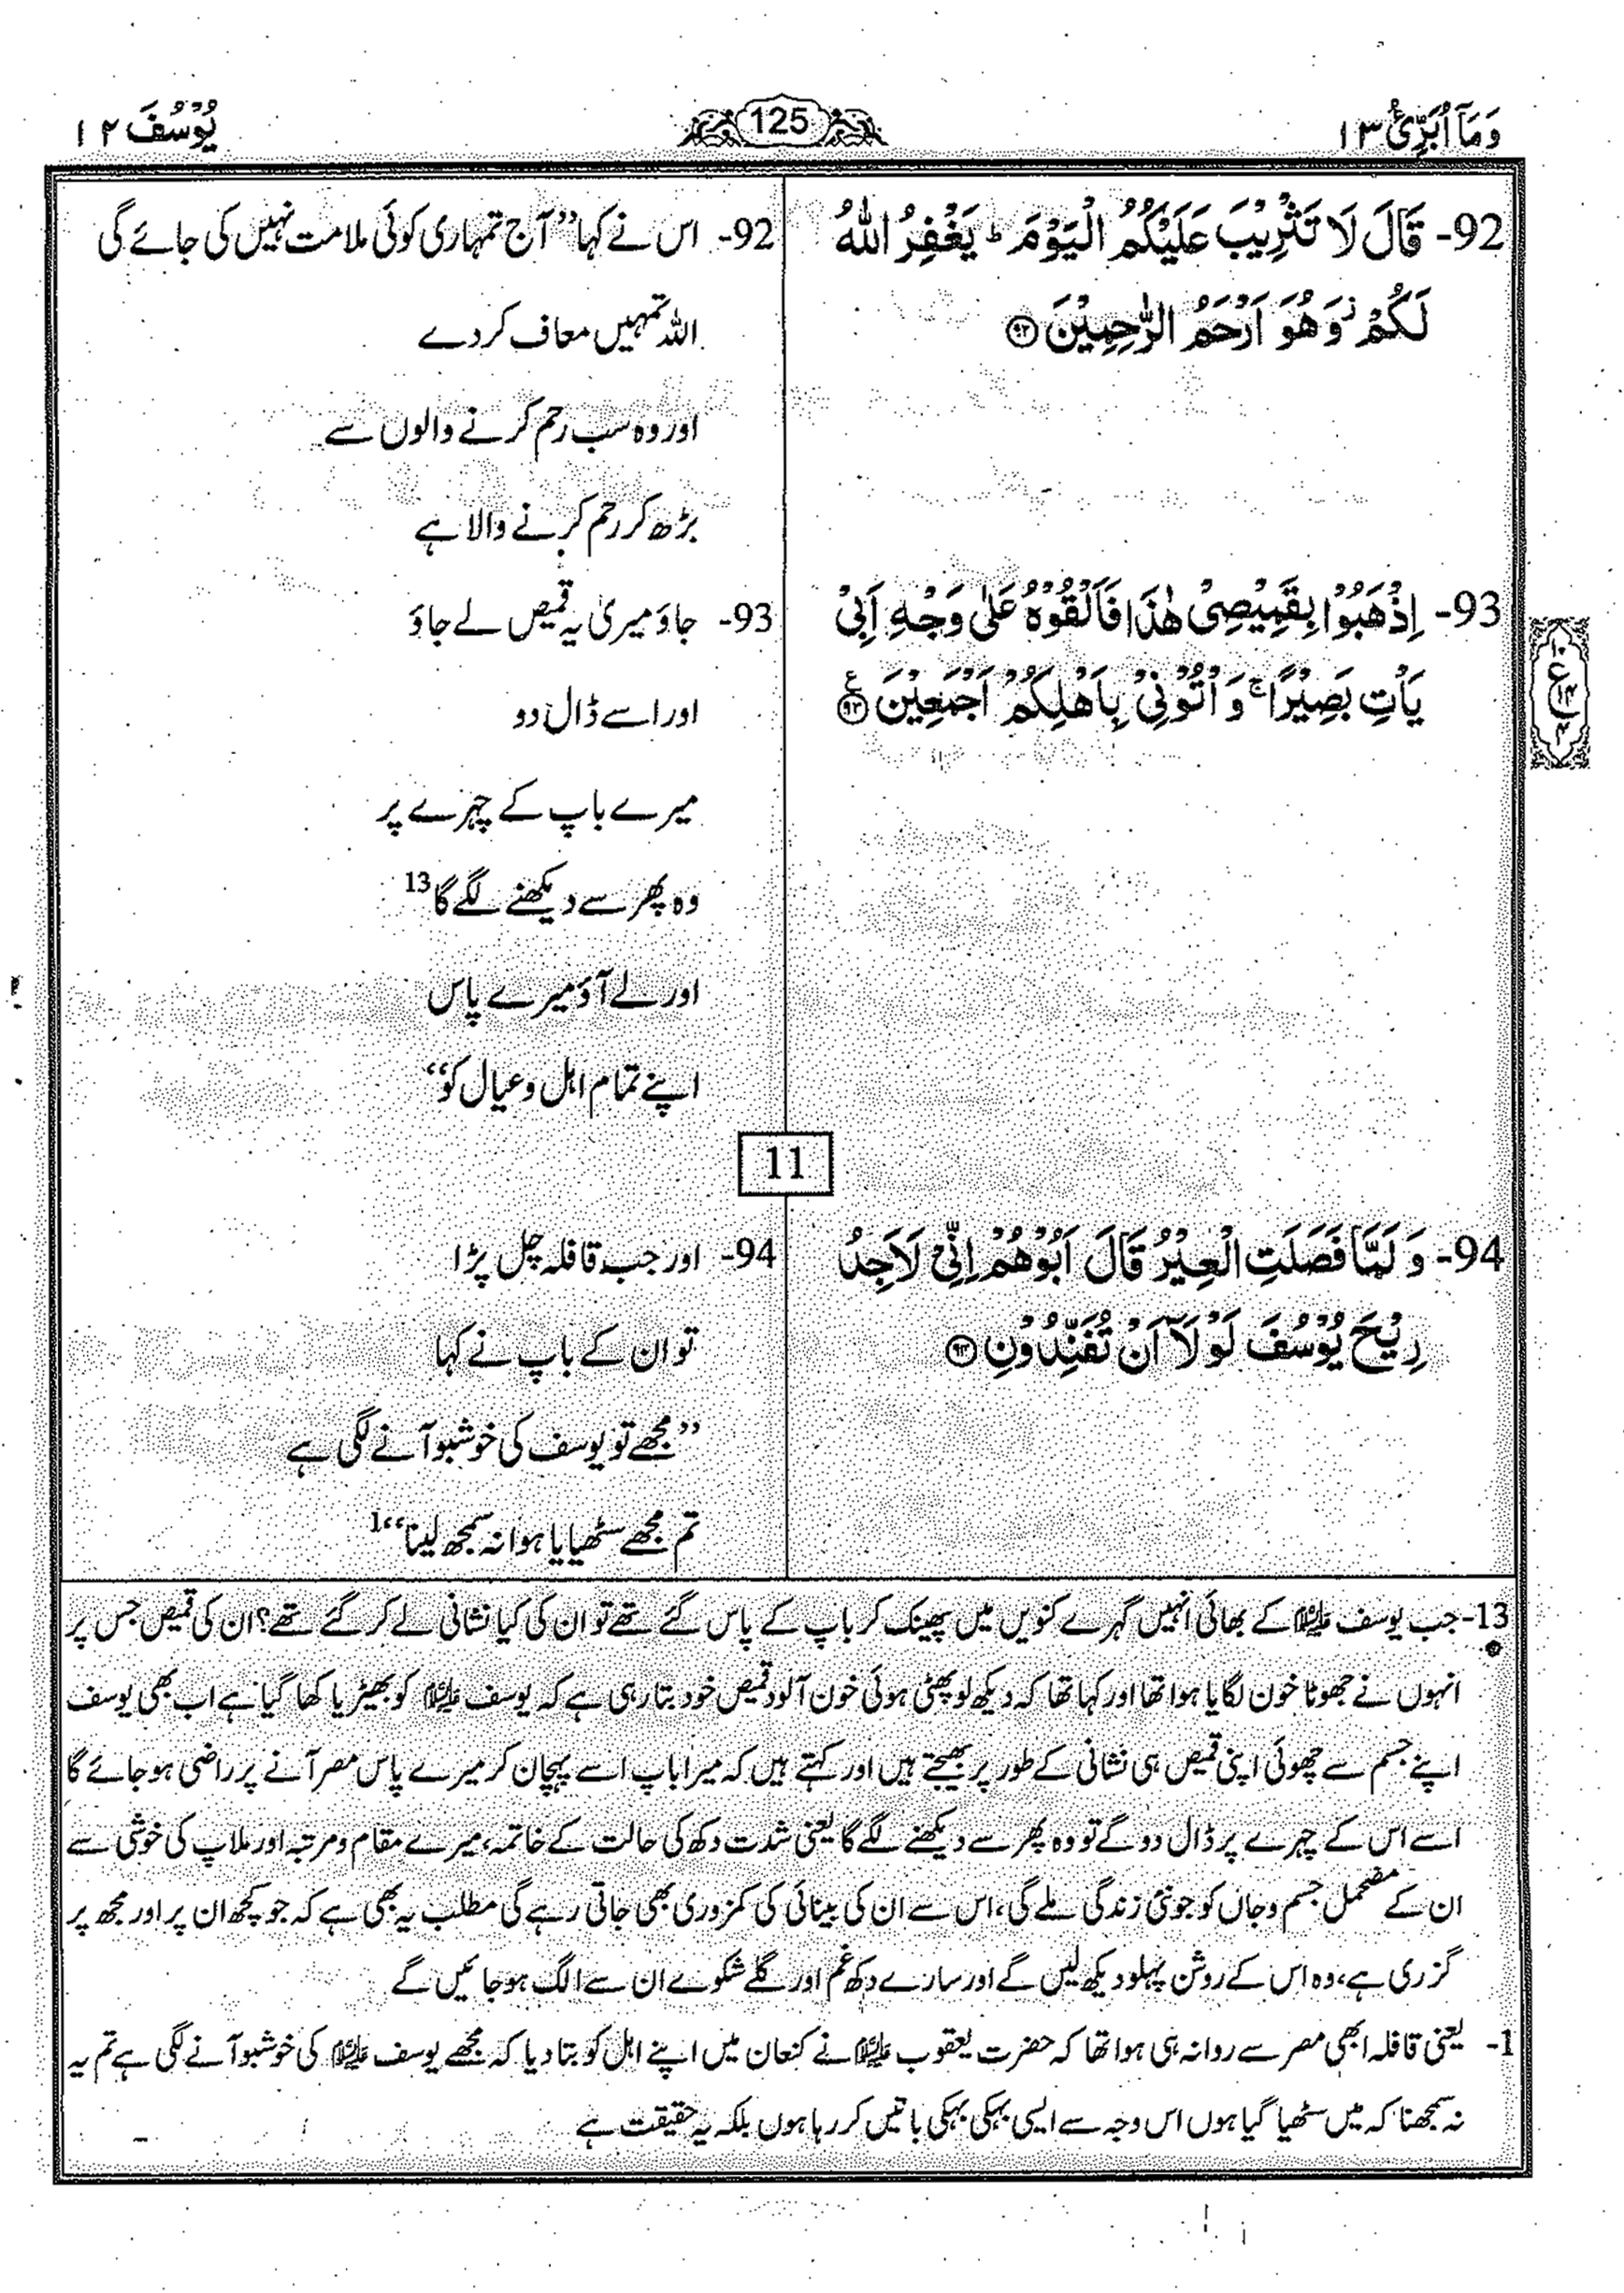 وَمَآ اُبَرِّئُ ۱۳
125
یُوْسُفَ ۱۲
92- قَالَ لَا تَثْرِیْبَ عَلَیْكُمُ الْیَوْمَ ؕ یَغْفِرُ اللّٰهُ
لَكُمْ ؗ وَهُوَ اَرْحَمُ الرّٰحِمِیْنَ ﴿۹۲﴾
92- اس نے کہا ’’آج تمہاری کوئی ملامت نہیں کی جائے گی
اللہ تمہیں معاف کردے
اور وہ سب رحم کرنے والوں سے
بڑھ کر رحم کرنے والا ہے
93- اِذْهَبُوْا بِقَمِیْصِیْ هٰذَا فَاَلْقُوْهُ عَلٰی وَجْهِ اَبِیْ
یَاْتِ بَصِیْرًا ۚ وَ اْتُوْنِیْ بِاَهْلِكُمْ اَجْمَعِیْنَ ﴿۹۳﴾ ع
۱۰
ع
۱۴
۴
93- جاؤ میری یہ قمیص لے جاؤ
اور اسے ڈال دو
میرے باپ کے چہرے پر
وہ پھر سے دیکھنے لگے گا13
اور لے آؤ میرے پاس
اپنے تمام اہل و عیال کو‘‘
11
94- وَ لَمَّا فَصَلَتِ الْعِیْرُ قَالَ اَبُوْهُمْ اِنِّیْ لَاَجِدُ
رِیْحَ یُوْسُفَ لَوْ لَاۤ اَنْ تُفَنِّدُوْنِ ﴿۹۴﴾
94- اور جب قافلہ چل پڑا
تو ان کے باپ نے کہا
’’مجھے تو یوسف کی خوشبو آنے لگی ہے
تم مجھے سٹھیایا ہوا نہ سمجھ لینا‘‘1
13- جب یوسف علیہ السلام کے بھائی انہیں گہرے کنویں میں پھینک کر باپ کے پاس گئے تھے تو ان کی کیا نشانی لے کر گئے تھے؟ ان کی قمیص جس پر
انہوں نے جھوٹا خون لگایا ہوا تھا اور کہا تھا کہ دیکھ لو پھٹی ہوئی خون آلود قمیص خود بتا رہی ہے کہ یوسف علیہ السلام کو بھیڑیا کھا گیا ہے اب بھی یوسف
اپنے جسم سے چھوئی اپنی قمیص ہی نشانی کے طور پر بھیجتے ہیں اور کہتے ہیں کہ میرا باپ اسے پہچان کر میرے پاس مصر آنے پر راضی ہو جائے گا
اسے اس کے چہرے پر ڈال دو گے تو وہ پھر سے دیکھنے لگے گا یعنی شدت دکھ کی حالت کے خاتمہ، میرے مقام و مرتبہ اور ملاپ کی خوشی سے
ان کے مضمحل جسم و جاں کو جو نئی زندگی ملے گی، اس سے ان کی بینائی کی کمزوری بھی جاتی رہے گی مطلب یہ بھی ہے کہ جو کچھ ان پر اور مجھ پر
گزری ہے، وہ اس کے روشن پہلو دیکھ لیں گے اور سارے دکھ غم اور گلے شکوے ان سے الگ ہو جائیں گے
1- یعنی قافلہ ابھی مصر سے روانہ ہی ہوا تھا کہ حضرت یعقوب علیہ السلام نے کنعان میں اپنے اہل کو بتا دیا کہ مجھے یوسف علیہ السلام کی خوشبو آنے لگی ہے تم یہ
نہ سمجھنا کہ میں سٹھیا گیا ہوں اس وجہ سے ایسی بہکی بہکی باتیں کر رہا ہوں بلکہ یہ حقیقت ہے